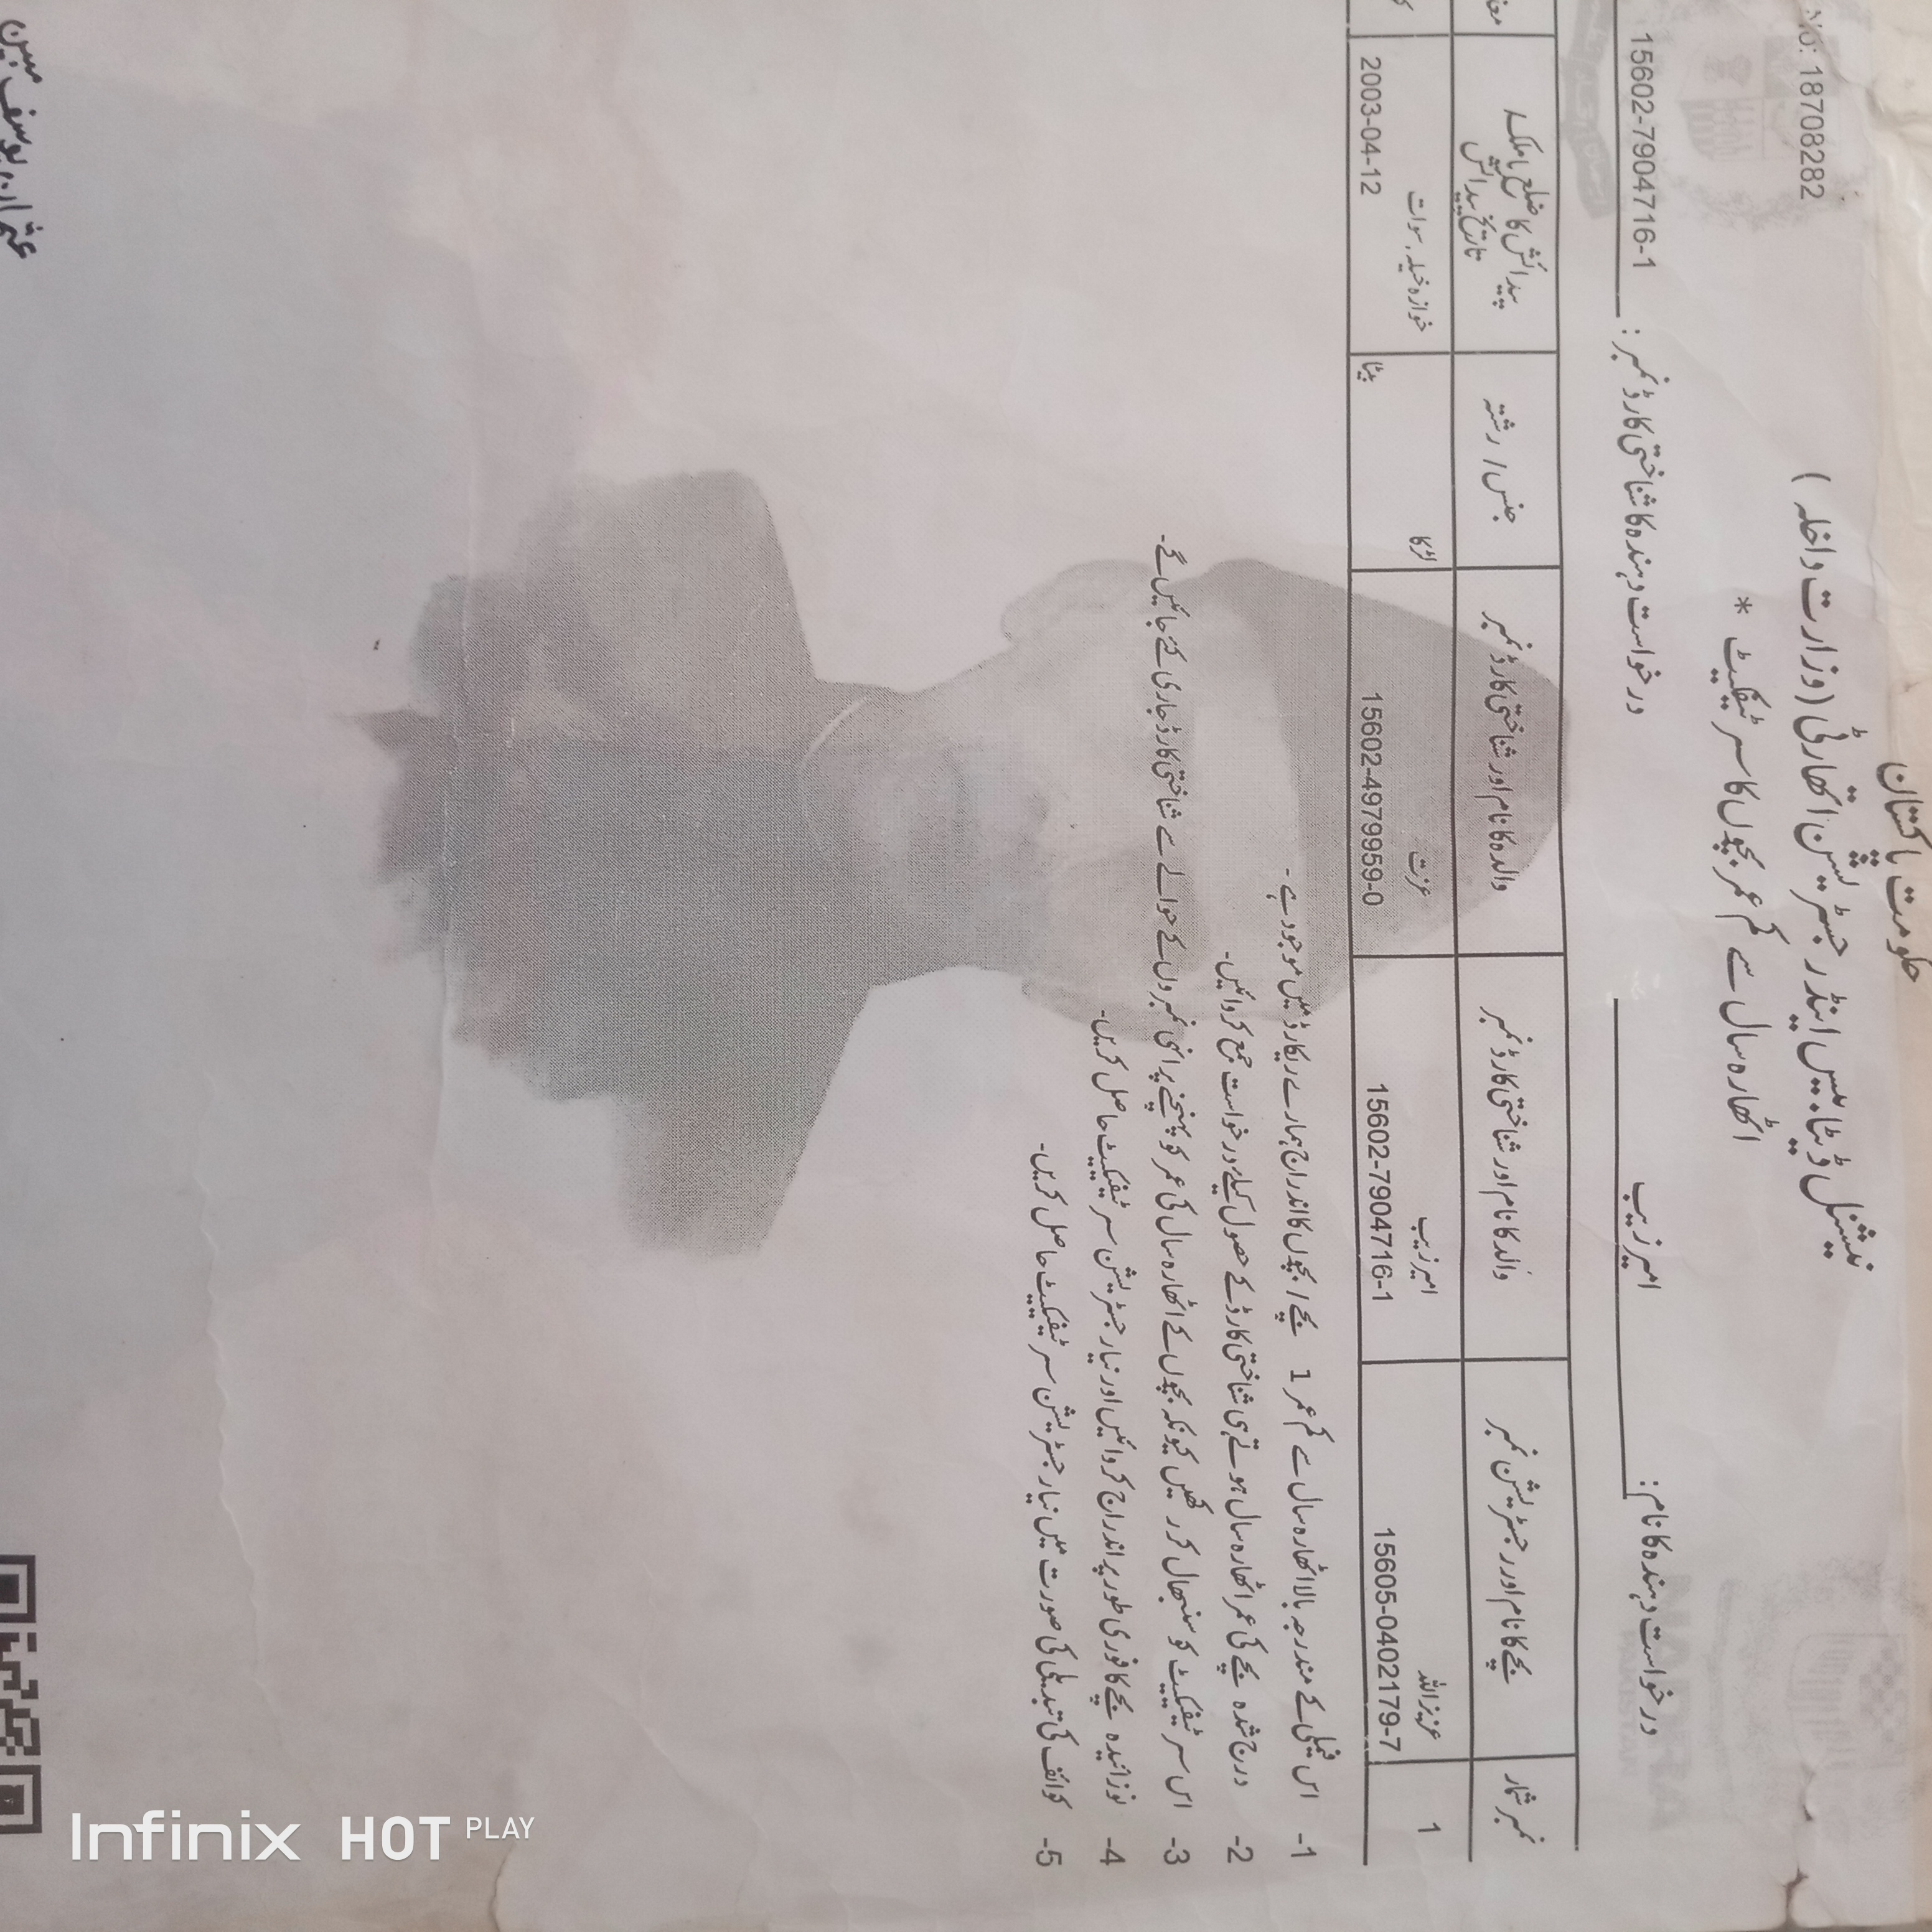 حکومت پاکستان
نیشنل ڈیٹا بیس اینڈ رجسٹریشن اتھارٹی (وزارت داخلہ)
No: 18708282
اٹھارہ سال سے کم عمر بچوں کا سرٹیفکیٹ *
درخواست دہندہ کا نام: امیر زیب
درخواست دہندہ کا شناختی کارڈ نمبر: 15602-7904716-1
نمبر شمار
بچے کا نام اور رجسٹریشن نمبر
والد کا نام اور شناختی کارڈ نمبر
والدہ کا نام اور شناختی کارڈ نمبر
جنس / رشتہ
پیدائش کا ضلع یا ملک / تاریخ پیدائش
1
عزیز اللہ
15605-0402179-7
امیر زیب
15602-7904716-1
عزت
15602-4979959-0
لڑکا
بیٹا
خوازہ خیلہ، سوات
2003-04-12
1- اس فیملی کے مندرجہ بالا اٹھارہ سال سے کم عمر 1 بچے / بچوں کا اندراج ہمارے ریکارڈ میں موجود ہے۔
2- درج شدہ بچے کی عمر اٹھارہ سال ہوتے ہی شناختی کارڈ کے حصول کیلئے درخواست جمع کروائیں۔
3- اس سرٹیفکیٹ کو سنبھال کر رکھیں کیونکہ بچوں کے اٹھارہ سال کی عمر کو پہنچنے پر انہی نمبروں کے حوالے سے شناختی کارڈ جاری کئے جائیں گے۔
4- نوزائیدہ بچے کا فوری طور پر اندراج کروائیں اور نیا رجسٹریشن سرٹیفکیٹ حاصل کریں۔
5- کوائف کی تبدیلی کی صورت میں نیا رجسٹریشن سرٹیفکیٹ حاصل کریں۔
عثمان یوسف مبین
Infinix HOT PLAY